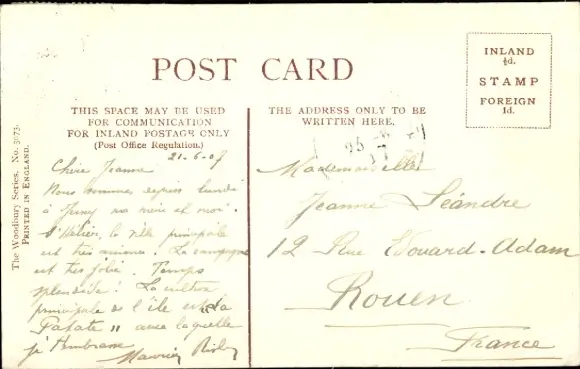 POST CARD
THIS SPACE MAY BE USED
FOR COMMUNICATION
FOR INLAND POSTAGE ONLY
(Post Office Regulation.)
THE ADDRESS ONLY TO BE
WRITTEN HERE.
INLAND
½d.
STAMP
FOREIGN
1d.
The Woodbury Series. No. 3073.
PRINTED IN ENGLAND.
21-6-07
Chère Jeanne
Nous sommes depuis lundi
à Jersey ma mère et moi.
St Hélier, la ville principale
est très . La campagne
est très jolie. Temps
splendide! La culture
principale de l'île est "La
Patate" avec laquelle
je t'embrasse
Mademoiselle
Jeanne Léandre
12 Rue Édouard-Adam
Rouen
France